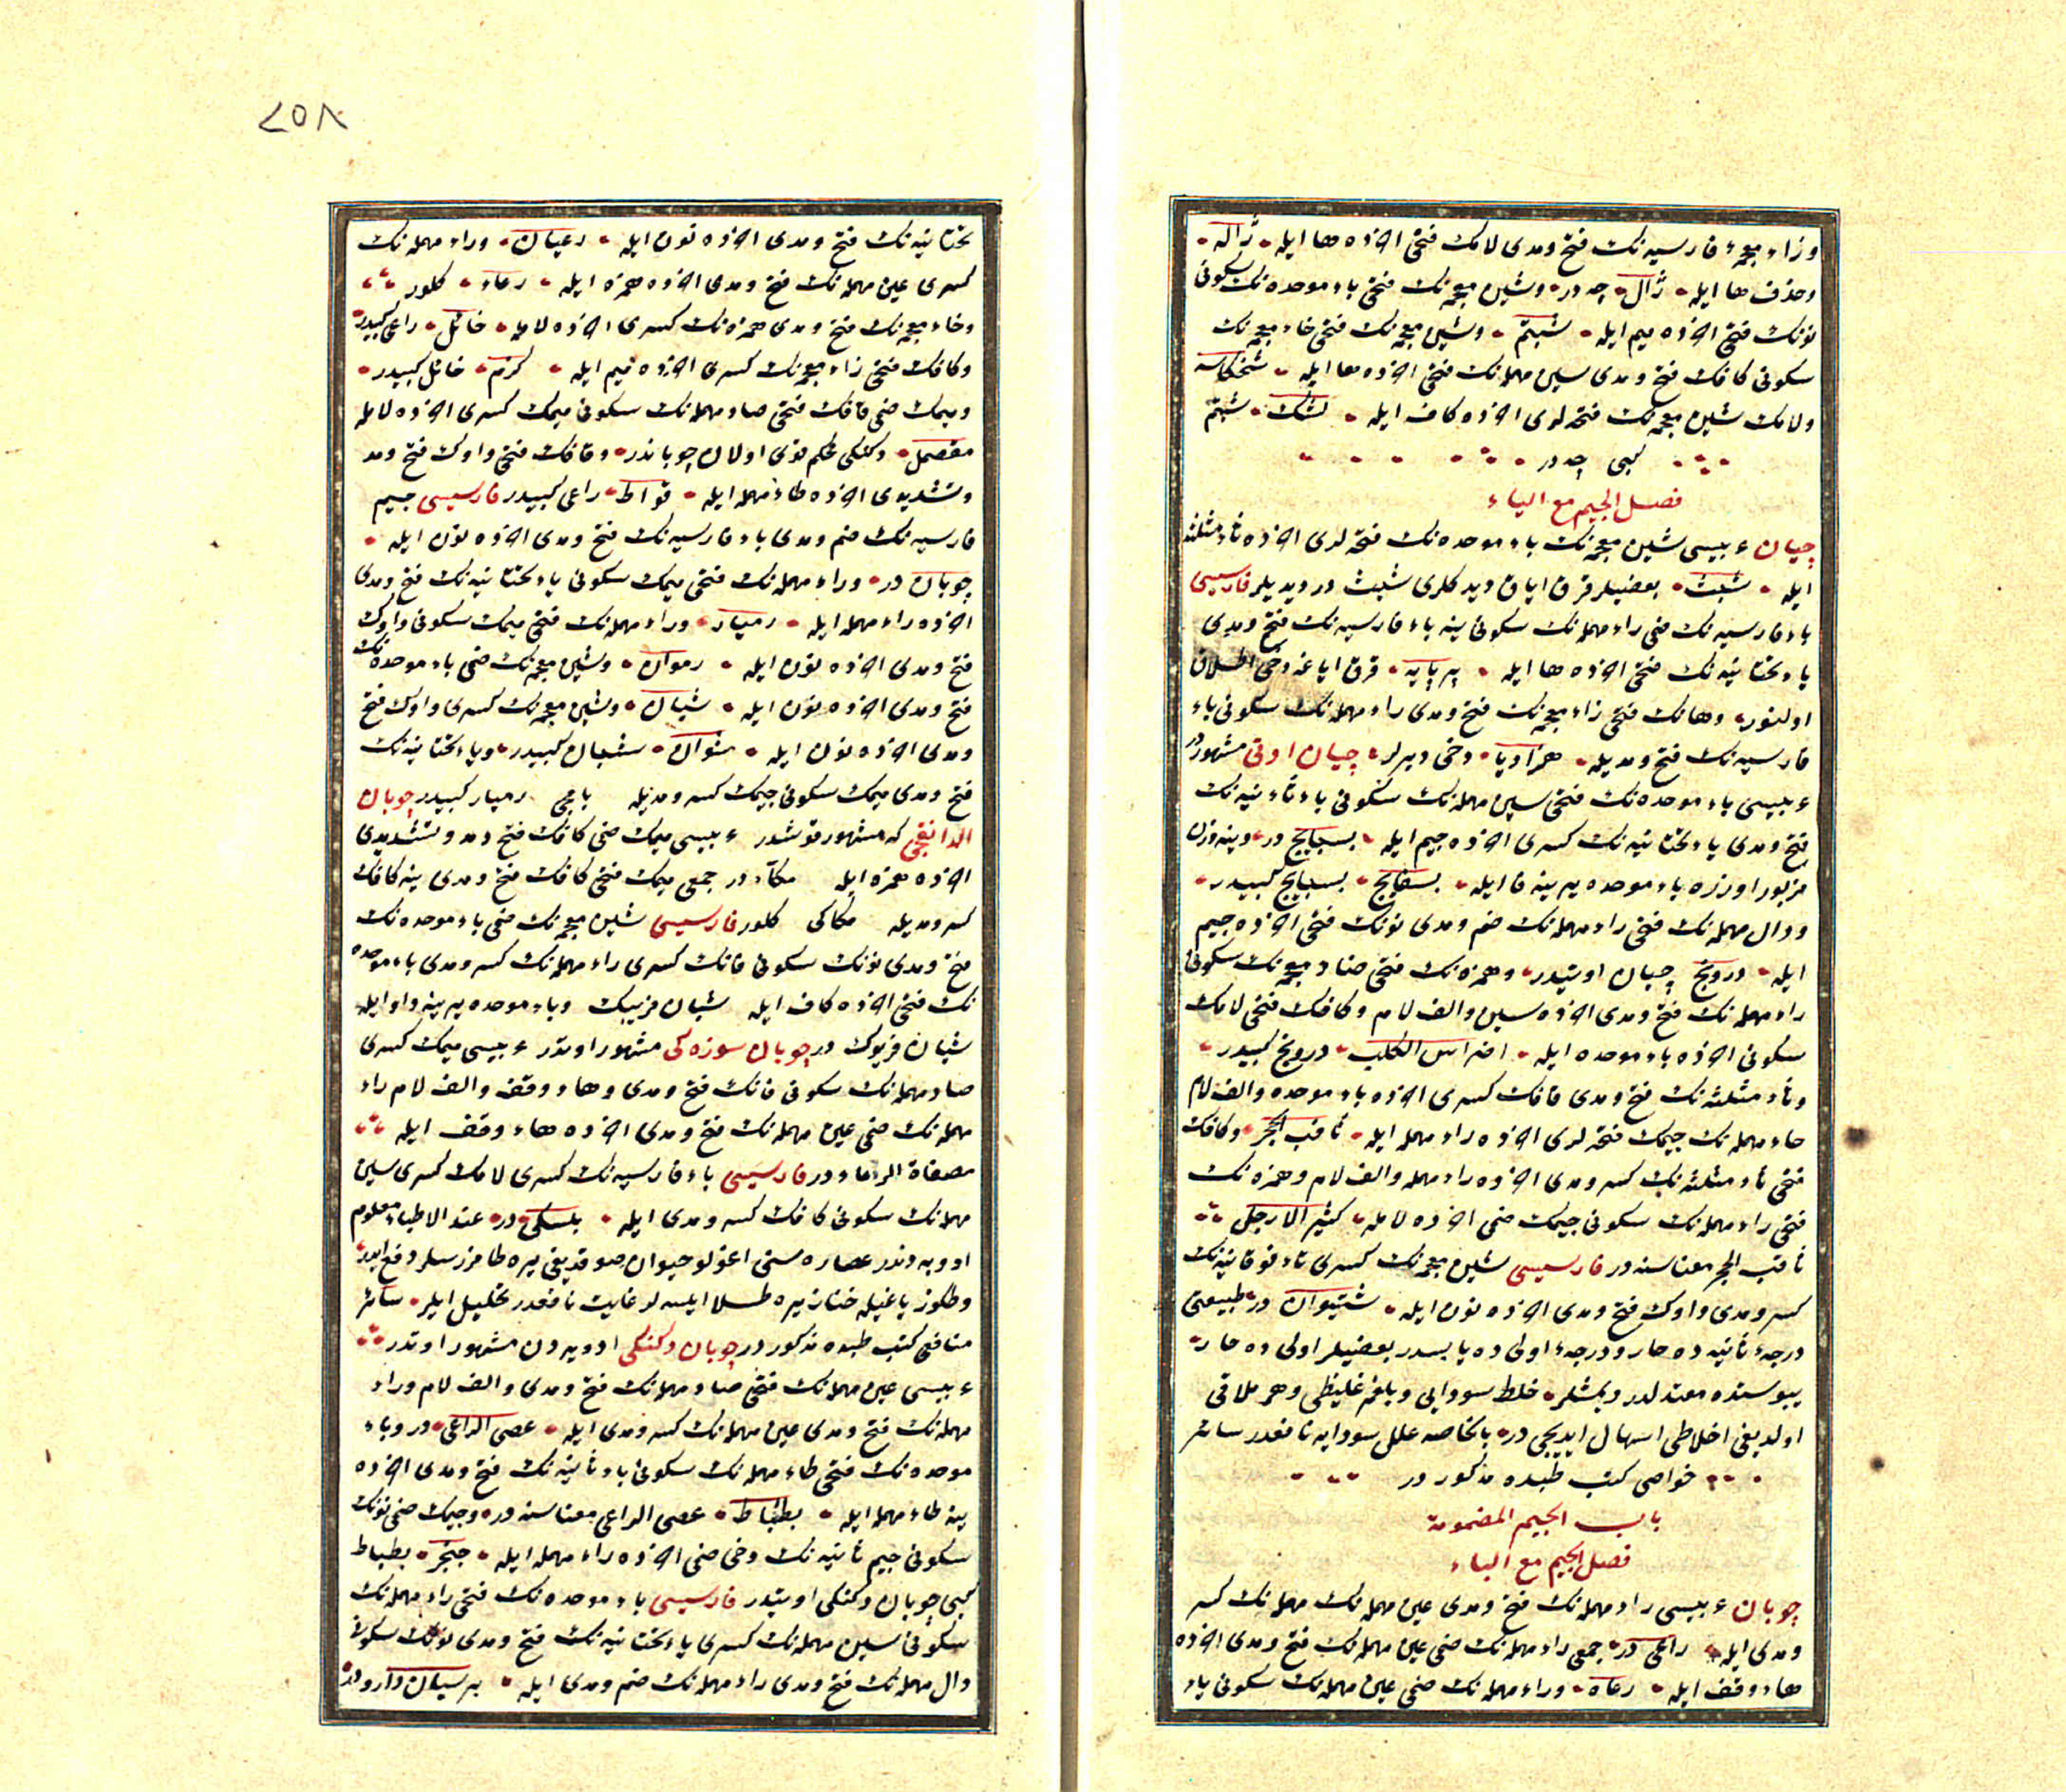 وزاء معجمۀ فارسیه نك فتح ومدی لامك فتحی اخرده ها ایله ژاله
وحذف ها ایله ژال چه در وشین معجمه نك فتحی باء موحده نك سکونی
نونك فتحی اخرده میم ایله شبنم وشین معجمه نك فتحی خاء معجمه نك
سکونی کافك فتح ومدی سین مهمله نك فتحی اخرده ها ایله شخکاسه
ولامك شین معجمه نك فتحه لری اخرده کاف ایله لشك شبنم
کبی چه در
فصل الجیم مع الیاء
چیان عربیسی شین معجمه نك باء موحده نك فتحه لری اخرده ثاء مثلثه
ایله شبث بعضیلر قرق ایاق دیدکلری شبث در دیدیلر فارسیسی
باء فارسیه نك ضمی راء مهمله نك سکونی ینه باء فارسیه نك فتح ومدی
یاء تحتانیه نك فتحی اخرده ها ایله پرپایه قرق ایاغه دخی اطلاق
اولنور وهانك فتحی زاء معجمه نك فتح ومدی راء مهمله نك سکونی باء
فارسیه نك فتح ومدیله هزارپا دخی دیرلر چیان اوتی مشهوردر
عربیسی باء موحده نك فتحی سین مهمله نك سکونی باء ثانیه نك
فتح ومدی یاء تحتانیه نك کسری اخرده جیم ایله بسبایج در وینه وزن
مزبور اوزره باء موحده یرینه فا ایله بسفایج بسبایج کبیدر
ودال مهمله نك فتحی راء مهمله نك ضم ومدی نونك فتحی اخرده جیم
ایله درونج چیان اوتیدر وهمزه نك فتحی ضاد معجمه نك سکونی
راء مهمله نك فتح ومدی اخرده سین والف لام وکافك فتحی لامك
سکونی اخرده باء موحده ایله اضراس الکلب درونج کبیدر
وثاء مثلثه نك فتح ومدی قافك کسری اخرده باء موحده والف لام
حاء مهمله نك جیمك فتحه لری اخرده راء مهمله ایله ثاقب الحجر وکافك
فتحی ثاء مثلثه نك کسر ومدی اخرده راء مهمله والف لام وهمزه نك
فتحی راء مهمله نك سکونی جیمك ضمی اخرده لام ایله کثیر الارجل
ثاقب الحجر معناسنه در فارسیسی شین معجمه نك کسری تاء فوقانیه نك
کسر ومدی واوك فتح ومدی اخرده نون ایله شتیوان در طبیعتی
درجۀ ثانیه ده حار ودرجۀ اولی ده یابسدر بعضیلر اولی ده حار
یبوستده معتدلدر دیمشلر خلط سودایی وبلغم غلیظی وهر ملاقی
اولدیغی اخلاطی اسهال ایدیجی در بالخاصه علل سودایه نافعدر سائر
خواصی کتب طبده مذکور در
باب الجیم المضمومة
فصل الجیم مع الباء
چوبان عربیسی راء مهمله نك فتح ومدی عین مهمله نك مهمله نك کسر
ومدی ایله راعی در جمعی راء مهمله نك ضمی عین مهمله نك فتح ومدی اخرده
هاء وقف ایله رعاه وراء مهمله نك ضمی عین مهمله نك سکونی یاء
٧٥٨
تحتانیه نك فتح ومدی اخرده نون ایله رعیان وراء مهمله نك
کسری عین مهمله نك فتح ومدی اخرده همزه ایله رعاء کلور
وخاء معجمه نك فتح ومدی همزه نك کسری اخرده لام ایله خائل راعی کبیدر
وکافك فتحی زاء معجمه نك کسری اخرده میم ایله کزم خائل کبیدر
ومیمك ضمی قافك فتحی صاد مهمله نك سکونی میمك کسری اخرده لام ایله
مقصمل دکنکی محکم قوی اولان چوباندر وقافك فتحی واوك فتح ومد
وتشدیدی اخرده طاء مهمله ایله قواط راعی کبیدر فارسیسی جیم
فارسیه نك ضم ومدی باء فارسیه نك فتح ومدی اخرده نون ایله
چوپان در وراء مهمله نك فتحی میمك سکونی یاء تحتانیه نك فتح ومدی
اخرده راء مهمله ایله رمیار وراء مهمله نك فتحی میمك سکونی واوك
فتح ومدی اخرده نون ایله رموان وشین معجمه نك ضمی باء موحده نك
فتح ومدی اخرده نون ایله شبان وشین معجمه نك کسری واوك فتح
ومدی اخرده نون ایله شوان شبان کبیدر ویاء تحتانیه نك
فتح ومدی میمك سکونی جیمك کسر ومدیله یامجی رمیار کبیدر چوبان
الدانغجی که مشهور قوشدر عربیسی میمك ضمی کافك فتح ومد وتشدیدی
اخرده همزه ایله مکاء در جمعی میمك فتحی کافك فتح ومدی ینه کافك
کسر ومدیله مکاکی کلور فارسیسی شین معجمه نك ضمی باء موحده نك
فتح ومدی نونك سکونی فانك کسری راء مهمله نك کسر ومدی باء موحده
نك فتحی اخرده کاف ایله شبان فریبك وباء موحده یرینه واو ایله
شبان فریوك در چوبان سوزه کی مشهور اوتدر عربیسی میمك کسری
صاد مهمله نك سکونی فانك فتح ومدی وهاء ووقف والف لام راء
مهمله نك ضمی عین مهمله نك فتح ومدی اخرده هاء وقف ایله
مصفاة الرعاء در فارسیسی باء فارسیه نك کسری لامك کسری سین
مهمله نك سکونی کافك کسر ومدی ایله پلسکی در عند الاطباء معلوم
ادویه دندر عصاره سنی اغولو حیوان صوقدیغی یره طامزرسلر دفع ایدر
وطکوز یاغیله خنازیره طلا ایلسه لر غایت نافعدر تحلیل ایلر سائر
منافعی کتب طبده مذکور در چوبان دکنکی ادویه دن مشهور اوتدر
عربیسی عین مهمله نك فتحی صاد مهمله نك فتح ومدی والف لام وراء
مهمله نك فتح ومدی عین مهمله نك کسر ومدی ایله عصی الراعی در وباء
موحده نك فتحی طاء مهمله نك سکونی باء ثانیه نك فتح ومدی اخرده
ینه طاء مهمله ایله بطباط عصی الراعی معناسنه در وجیمك ضمی نونك
سکونی جیم ثانیه نك دخی ضمی اخرده راء مهمله ایله جنجر بطباط
کبی چوبان دکنکی اوتیدر فارسیسی باء موحده نك فتحی راء مهمله نك
سکونی سین مهمله نك کسری یاء تحتانیه نك فتح ومدی نونك سکونی
دال مهمله نك فتح ومدی راء مهمله نك ضم ومدی ایله برسیان دارو در